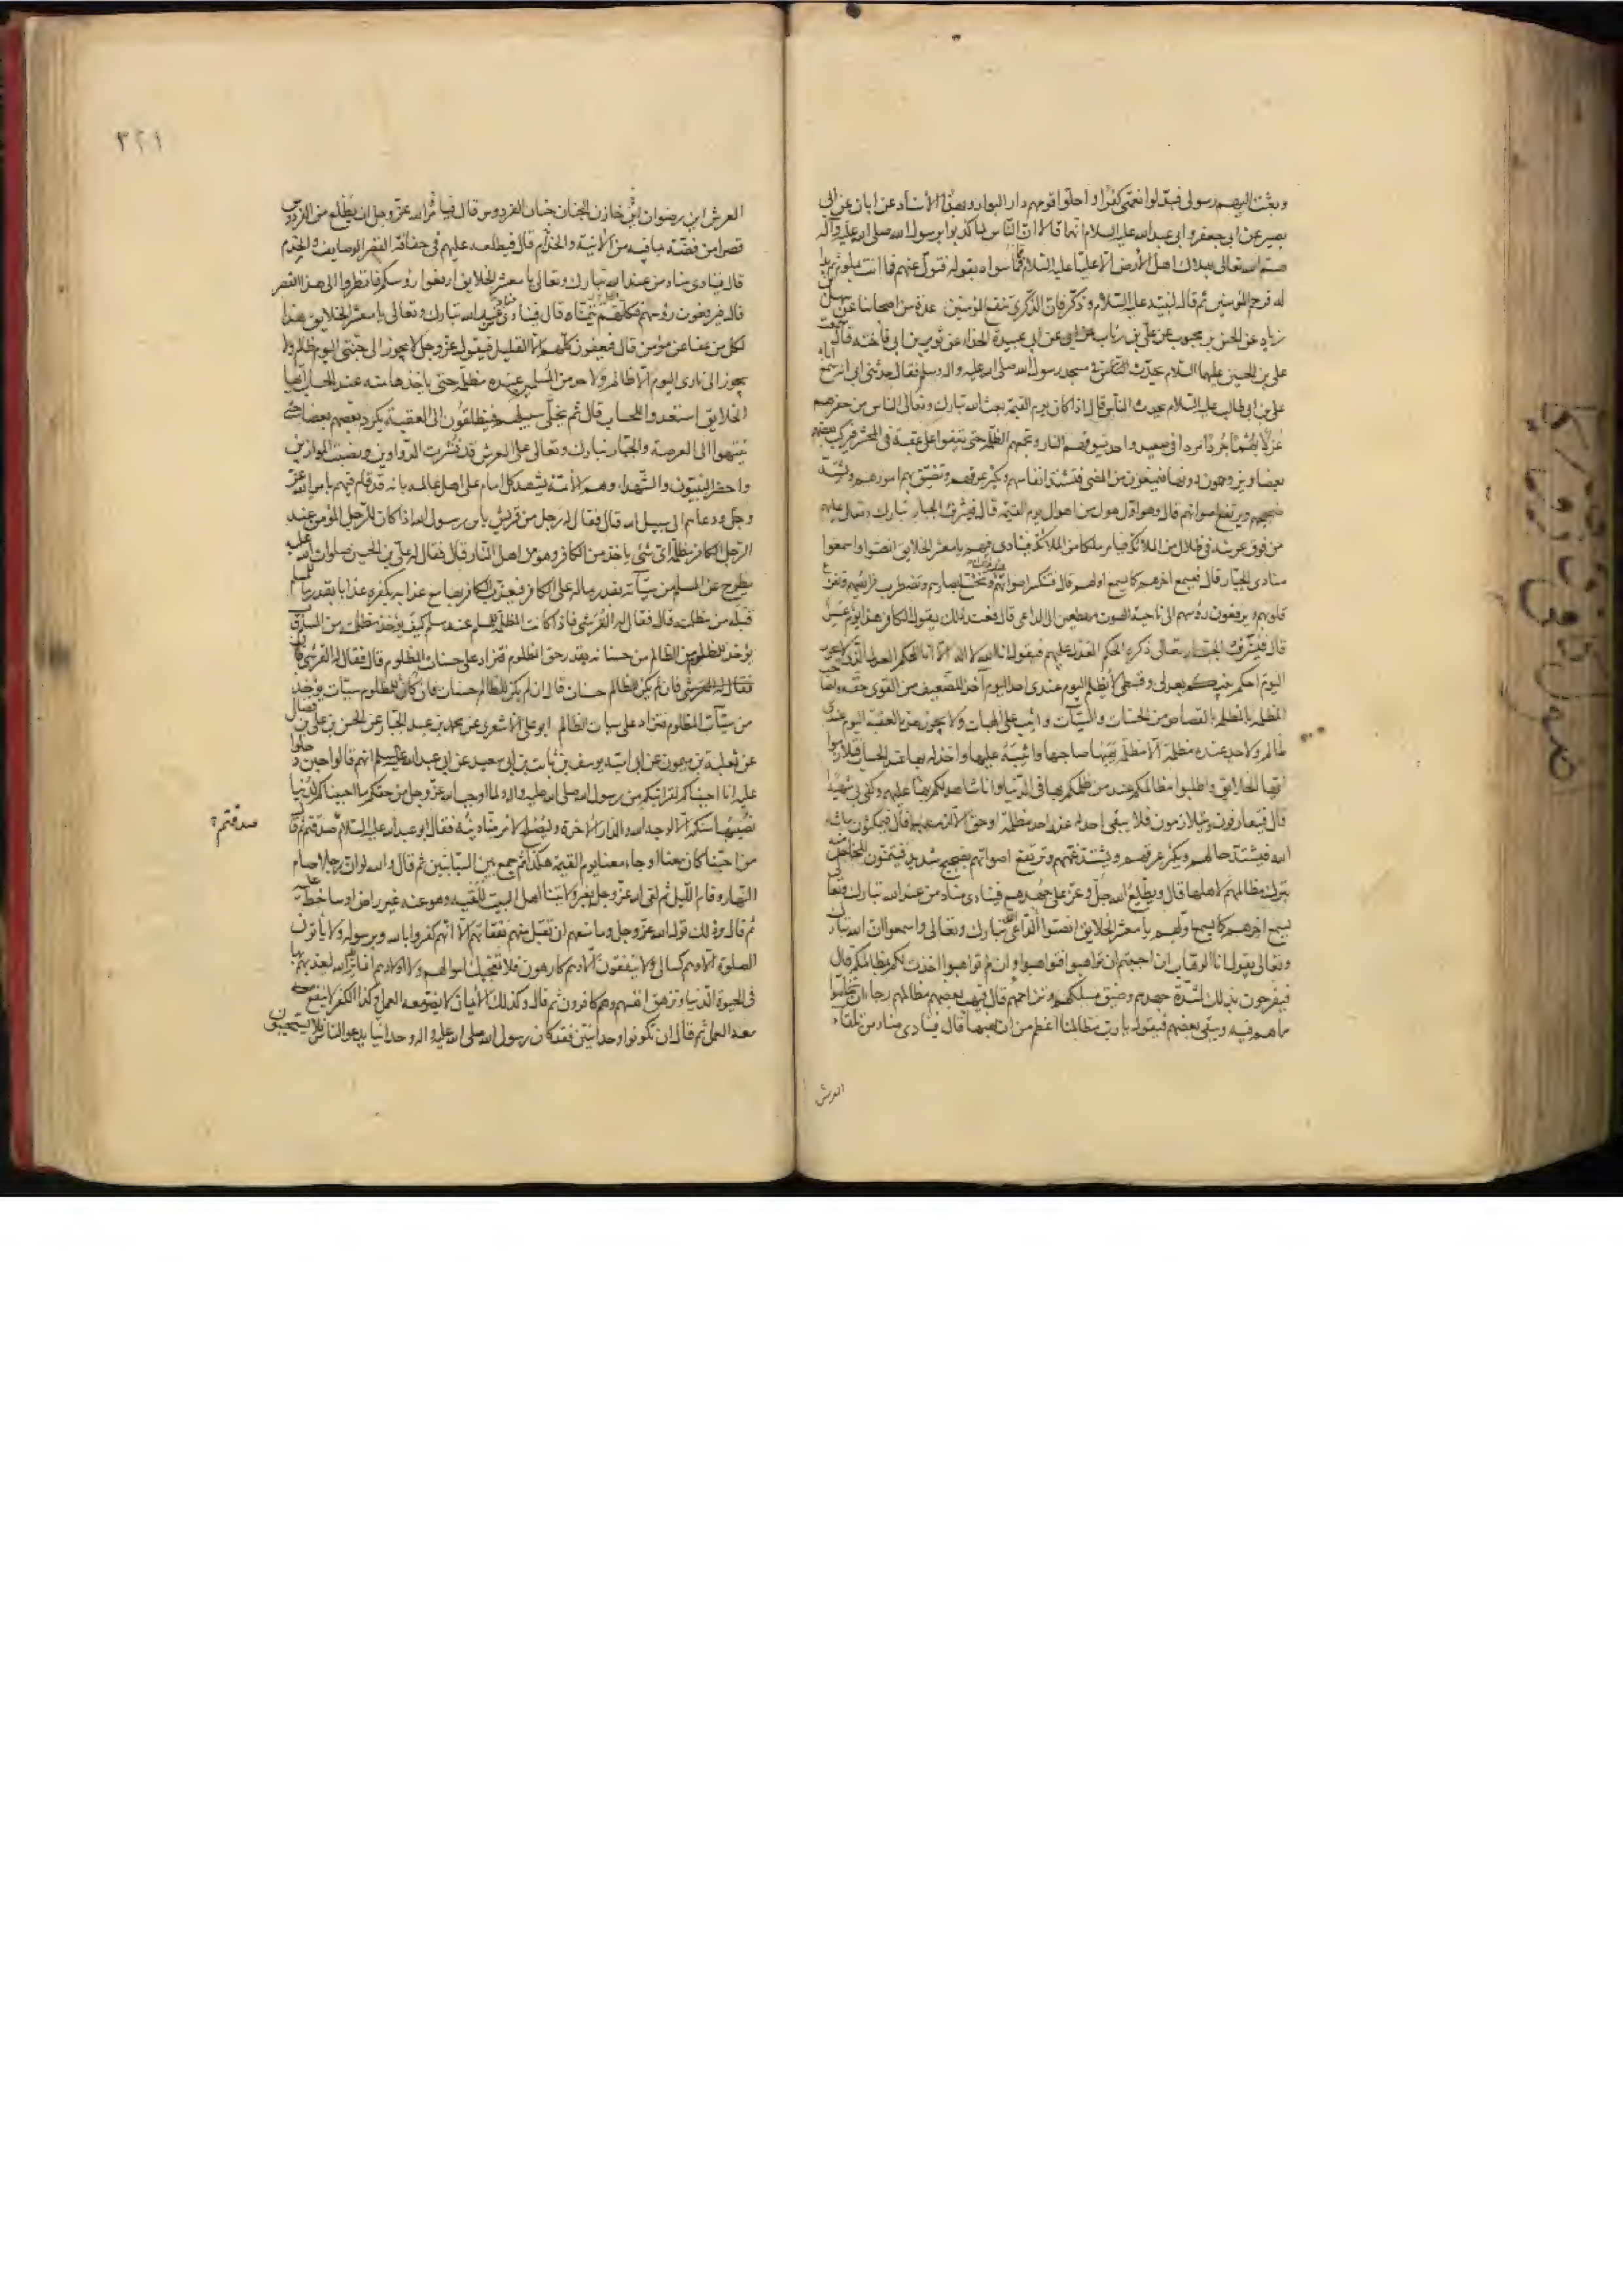 وبعثت اليهم رسولى فبدلوا نعمتى كفرا واحلوا قومهم دار البوار وبهذا الاسناد عن ابان عن ابى
بصير عن ابى جعفر وابى عبدالله عليه السلام انهما قالا ان الناس لما كذبوا برسول الله صلى الله عليه وآله
هم الله تعالى بهلاك اهل الارض الا عليا عليه السلام فما سواه بقوله فتول عنهم فما انت بملوم ثم بدا
له فرحم المؤمنين ثم قال لنبيه عليه السلام وذكر فان الذكرى تنفع المؤمنين عدة من اصحابنا عن سهل بن
زياد عن الحسن بن محبوب عن على بن رئاب عن ابى عبيدة الحذاء عن ثوير بن ابى فاخته قال سمعت
على بن الحسين عليهما السلام يحدث فى مسجد رسول الله صلى الله عليه واله وسلم فقال حدثنى ابى انه سمع اباه
على بن ابى طالب عليه السلام يحدث الناس قال اذا كان يوم القيمة بعث الله تبارك وتعالى الناس من حفرهم
عزلا بهما جردا مردا فى صعيد واحد يسوقهم النار وتجمعهم الظلمة حتى يقفوا على عقبة فى المحشر فيركب بعضهم
بعضا ويزدحمون دونها فيمنعون من المضى فتشتد انفاسهم ويكثر عرقهم وتضيق بهم امورهم ويشتد
ضجيجهم ويرتفع اصواتهم قال وهو اول هول من اهوال يوم القيمة قال فيشرف الجبار تبارك وتعالى عليهم
من فوق عرشه فى ظلال من الملائكة فيامر ملكا من الملائكة فينادى فيهم يا معشر الخلايق انصتوا واسمعوا
منادى الجبار قال فيسمع اخرهم كما يسمع اولهم قال فتنكسر اصواتهم عند ذلك وتخشع ابصارهم وتضطرب فرائصهم وتفزع
قلوبهم ويرفعون رؤسهم الى ناحية الصوت مهطعين الى الداعى قال فعند ذلك يقول الكافر هذا يوم عسر
قال فيشرف الجبار تعالى ذكره الحكم العدل عليهم فيقول انا الله لا اله الا انا الحكم العدل الذى لا يجور
اليوم احكم بينكم بعدلى وقسطى لا يظلم اليوم عندى احد اليوم آخذ للضعيف من القوى حقه ولصاحب
المظلمة بالمظلمة بالقصاص من الحسنات والسيئات واثيب على الهبات ولا يجوز هذه العقبة اليوم عندى
ظالم ولا احد عنده مظلمة الا مظلمة يهبها صاحبها واثيبه عليها واخذ له بها عند الحساب فتلازموا
ايها الخلائق واطلبوا مظالمكم عند من ظلمكم بها فى الدنيا وانا شاهد لكم بها عليهم وكفى بى شهيدا
قال فيتعارفون ويتلازمون فلا يبقى احد له عند احد مظلمة او حق الا لزمه بها قال فيمكثون ما شاء
الله فيشتد حالهم ويكثر عرقهم ويشتد غمهم وترتفع اصواتهم بضجيج شديد فيتمنون المخلص منه
بترك مظالمهم لاهلها قال ويطلع الله جل وعز على جهدهم فينادى مناد من عند الله تبارك وتعالى
يسمع اخرهم كما يسمع اولهم يا معشر الخلايق انصتوا لداعى الله تبارك وتعالى واسمعوا ان الله تبارك
وتعالى يقول انا الوهاب ان احببتم ان تواهبوا فتواهبوا وان لم تواهبوا اخذت لكم بمظالمكم قال
فيفرحون بذلك لشدة جهدهم وضيق مسلكهم وتزاحمهم قال فيهب بعضهم مظالمهم رجاء ان يتخلصوا
مما هم فيه ويبقى بعضهم فيقول يا رب مظالمنا اعظم من ان نهبها قال فينادى مناد من تلقاء
العرش
٣٢١
العرش اين رضوان خازن الجنان جنان الفردوس قال فيامر الله عز وجل ان يطلع من الفردوس
قصرا من فضة بما فيه من الآنية والخدام قال فيطلعه عليهم فى حفافة القصر الوصايف والخدم
قال فينادى مناد من عند الله تبارك وتعالى يا معشر الخلايق ارفعوا رؤسكم فانظروا الى هذا القصر
قال فيرفعون رؤسهم فكلهم يتمناه قال فينادى مناد من عند الله تبارك وتعالى يا معشر الخلايق هذا
لكل من عفا عن مؤمن قال فيعفون كلهم الا القليل فيقول الله عز وجل لا يجوز الى جنتى اليوم ظالم ولا
يجوز الى نارى اليوم ظالم ولاحد من المسلمين عنده مظلمة حتى ياخذها منه عند الحساب ايها
الخلايق استعدوا للحساب قال ثم يخلى سبيلهم فينطلقون الى العقبة يكرد بعضهم بعضا حتى
ينتهوا الى العرصة والجبار تبارك وتعالى على العرش قد نشرت الدواوين ونصبت الموازين
واحضر النبيون والشهداء وهم الائمة يشهد كل امام على اهل عالمه بانه قد قام فيهم بامر الله عز
وجل ودعاهم الى سبيل الله قال فقال له رجل من قريش يابن رسول الله اذا كان للرجل المؤمن عند
الرجل الكافر مظلمة اى شئ ياخذ من الكافر وهو من اهل النار قال فقال له على بن الحسين صلوات الله عليه
يطرح عن المسلم من سيئاته بقدر ماله على الكافر فيعذب الكافر بها مع عذابه بكفره عذابا بقدر ما للمسلم
قبله من مظلمة قال فقال له القرشى فاذا كانت المظلمة للمسلم عند مسلم كيف يؤخذ مظلمته من المسلم قال
يؤخذ للمظلوم من الظالم من حسناته بقدر حق المظلوم فتزاد على حسنات المظلوم قال فقال له القرشى فان
فقال له القرشى فان لم يكن للظالم حسنات قال ان لم يكن للظالم حسنات فان كان للمظلوم سيئات يؤخذ
من سيئات المظلوم فتزاد على سيئات الظالم ابو على الاشعرى عن محمد بن عبد الجبار عن الحسن بن على بن فضال
عن ثعلبة بن ميمون عن ابى امية يوسف بن ثابت بن ابى سعيد عن ابى عبدالله عليه السلام انهم قالوا حين دخلوا
عليه انا احببناكم لقرابتكم من رسول الله صلى الله عليه واله ولما اوجب الله عز وجل من حقكم ما احببناكم لدنيا
نصيبها منكم الا لوجه الله والدار الاخرة وليصلح لامرء منا دينه فقال ابو عبد الله عليه السلام صدقتم ثم قال
صدقتم
من احبنا كان معنا او جاء معنا يوم القيمة هكذا ثم جمع بين السبابتين ثم قال والله لو ان رجلا صام
النهار وقام الليل ثم لقى الله عز وجل بغير ولايتنا اهل البيت للقيه وهو عنه غير راض او ساخط عليه
ثم قال وذلك قول الله عز وجل وما منعهم ان تقبل منهم نفقاتهم الا انهم كفروا بالله وبرسوله ولا ياتون
الصلوة الا وهم كسالى ولا ينفقون الا وهم كارهون فلا تعجبك اموالهم ولا اولادهم انما يريد الله ليعذبهم بها
فى الحيوة الدنيا وتزهق انفسهم وهم كافرون ثم قال وكذلك الايمان لا يضر معه العمل وكذا الكفر لا ينفع
معه العمل ثم قال ان تكونوا وحدانيين فقد كان رسول الله صلى الله عليه واله وحدانيا يدعو الناس فلا يستجيبون